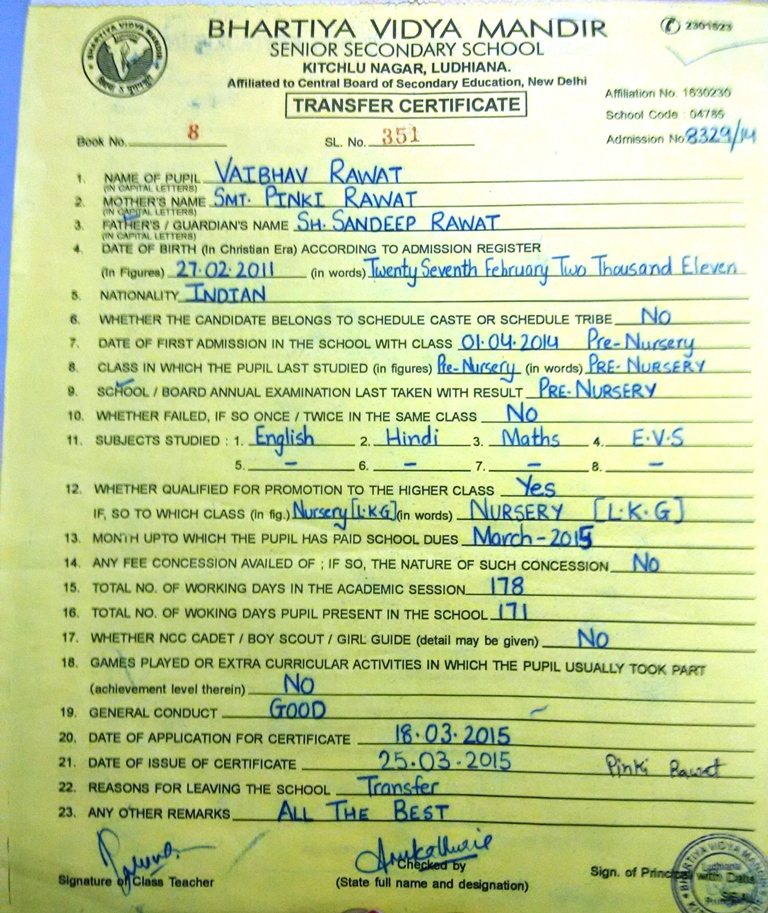 BHARTIYA VIDYA MANDIR
SENIOR SECONDARY SCHOOL
KITCHLU NAGAR, LUDHIANA.
Affiliated to Central Board of Secondary Education, New Delhi
TRANSFER CERTIFICATE
✆ 2301523
Affiliation No. 1630230
School Code : 04785
Admission No 8329/14
Book No. 8 SL. No. 351
1. NAME OF PUPIL VAIBHAV RAWAT
(IN CAPITAL LETTERS)
2. MOTHER'S NAME SMT. PINKI RAWAT
(IN CAPITAL LETTERS)
3. FATHER'S / GUARDIAN'S NAME SH. SANDEEP RAWAT
(IN CAPITAL LETTERS)
4. DATE OF BIRTH (In Christian Era) ACCORDING TO ADMISSION REGISTER
(In Figures) 27.02.2011 (in words) Twenty Seventh February Two Thousand Eleven
5. NATIONALITY INDIAN
6. WHETHER THE CANDIDATE BELONGS TO SCHEDULE CASTE OR SCHEDULE TRIBE No
7. DATE OF FIRST ADMISSION IN THE SCHOOL WITH CLASS 01.04.2014 Pre-Nursery
8. CLASS IN WHICH THE PUPIL LAST STUDIED (in figures) Pre-Nursery (in words) PRE-NURSERY
9. SCHOOL / BOARD ANNUAL EXAMINATION LAST TAKEN WITH RESULT PRE-NURSERY
10. WHETHER FAILED, IF SO ONCE / TWICE IN THE SAME CLASS No
11. SUBJECTS STUDIED : 1. English 2. Hindi 3. Maths 4. E.V.S
5. – 6. – 7. – 8. –
12. WHETHER QUALIFIED FOR PROMOTION TO THE HIGHER CLASS Yes
IF, SO TO WHICH CLASS (in fig.) Nursery [L.K.G] (in words) NURSERY [L.K.G]
13. MONTH UPTO WHICH THE PUPIL HAS PAID SCHOOL DUES March-2015
14. ANY FEE CONCESSION AVAILED OF ; IF SO, THE NATURE OF SUCH CONCESSION No
15. TOTAL NO. OF WORKING DAYS IN THE ACADEMIC SESSION 178
16. TOTAL NO. OF WOKING DAYS PUPIL PRESENT IN THE SCHOOL 171
17. WHETHER NCC CADET / BOY SCOUT / GIRL GUIDE (detail may be given) No
18. GAMES PLAYED OR EXTRA CURRICULAR ACTIVITIES IN WHICH THE PUPIL USUALLY TOOK PART
(achievement level therein) NO
19. GENERAL CONDUCT GOOD
20. DATE OF APPLICATION FOR CERTIFICATE 18.03.2015
21. DATE OF ISSUE OF CERTIFICATE 25.03.2015 Pinki Rawat
22. REASONS FOR LEAVING THE SCHOOL Transfer
23. ANY OTHER REMARKS ALL THE BEST
Signature of Class Teacher
Checked by
(State full name and designation)
Sign. of Principal with Date
BHARTIYA VIDYA MANDIR